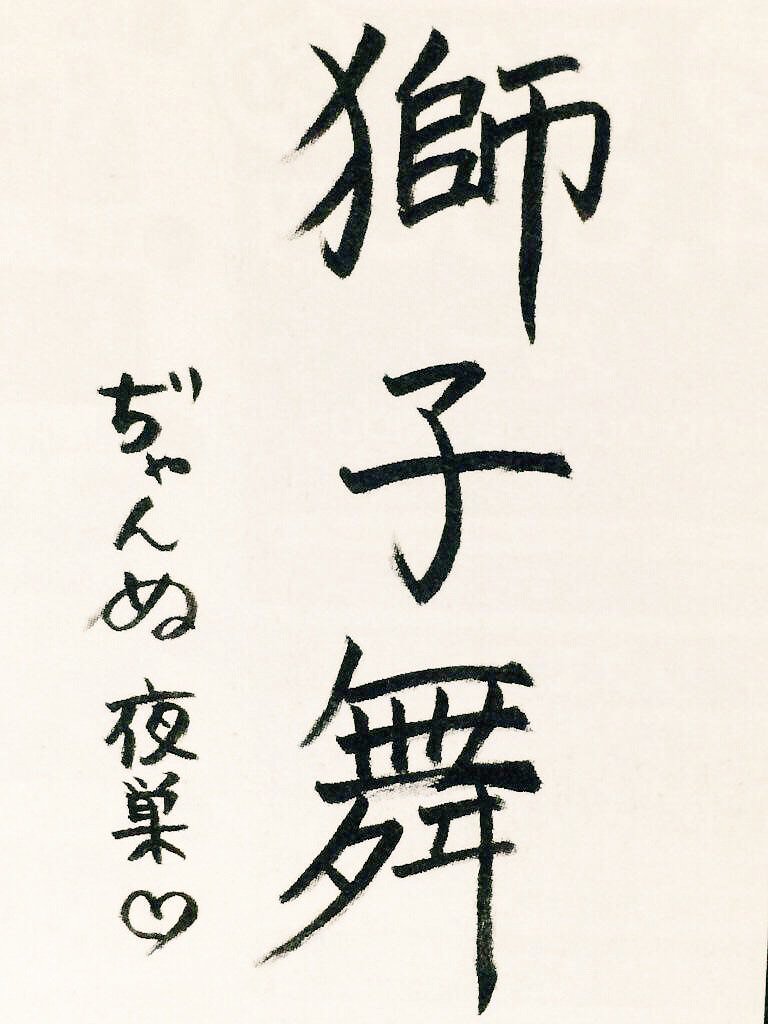 獅子舞
ぢゃんぬ 夜巣♡